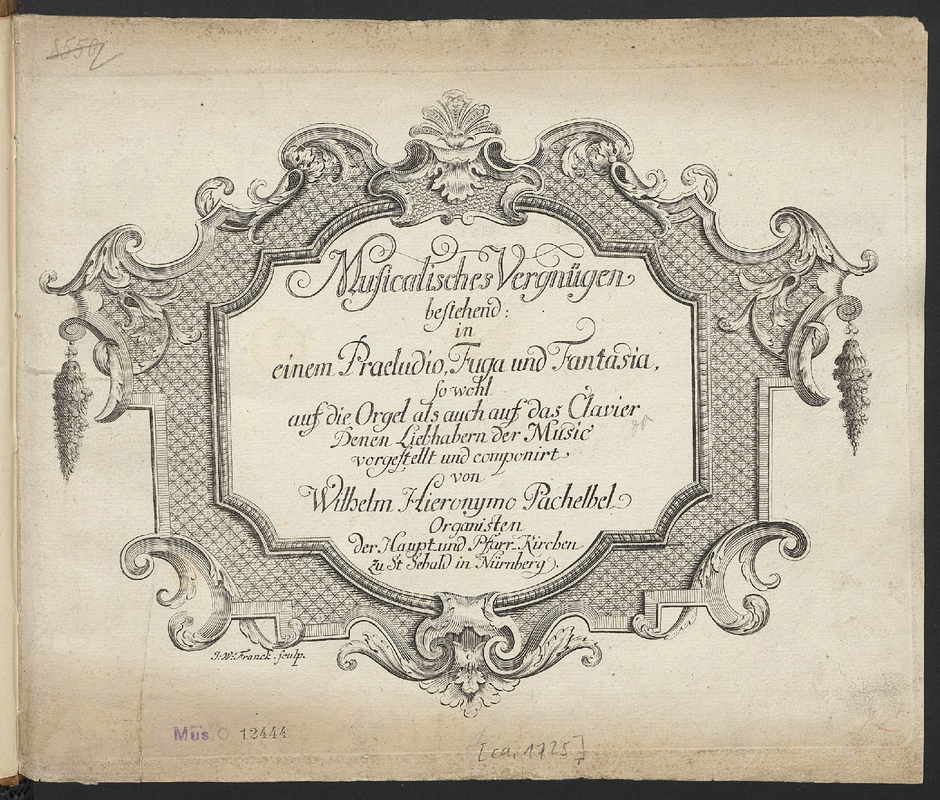 8550
Musicalisches Vergnügen
bestehend:
in
einem Praeludio, Fuga und Fantasia,
so wohl
auf die Orgel als auch auf das Clavier
Denen Liebhabern der Music
vorgestellt und componirt
von
Wilhelm Hieronymo Pachelbel
Organisten
der Haupt und Pfarr-Kirchen
zu St Sebald in Nürnberg.
J.W. Franck. sculp.
Mus. O 12444
[ca. 1725]